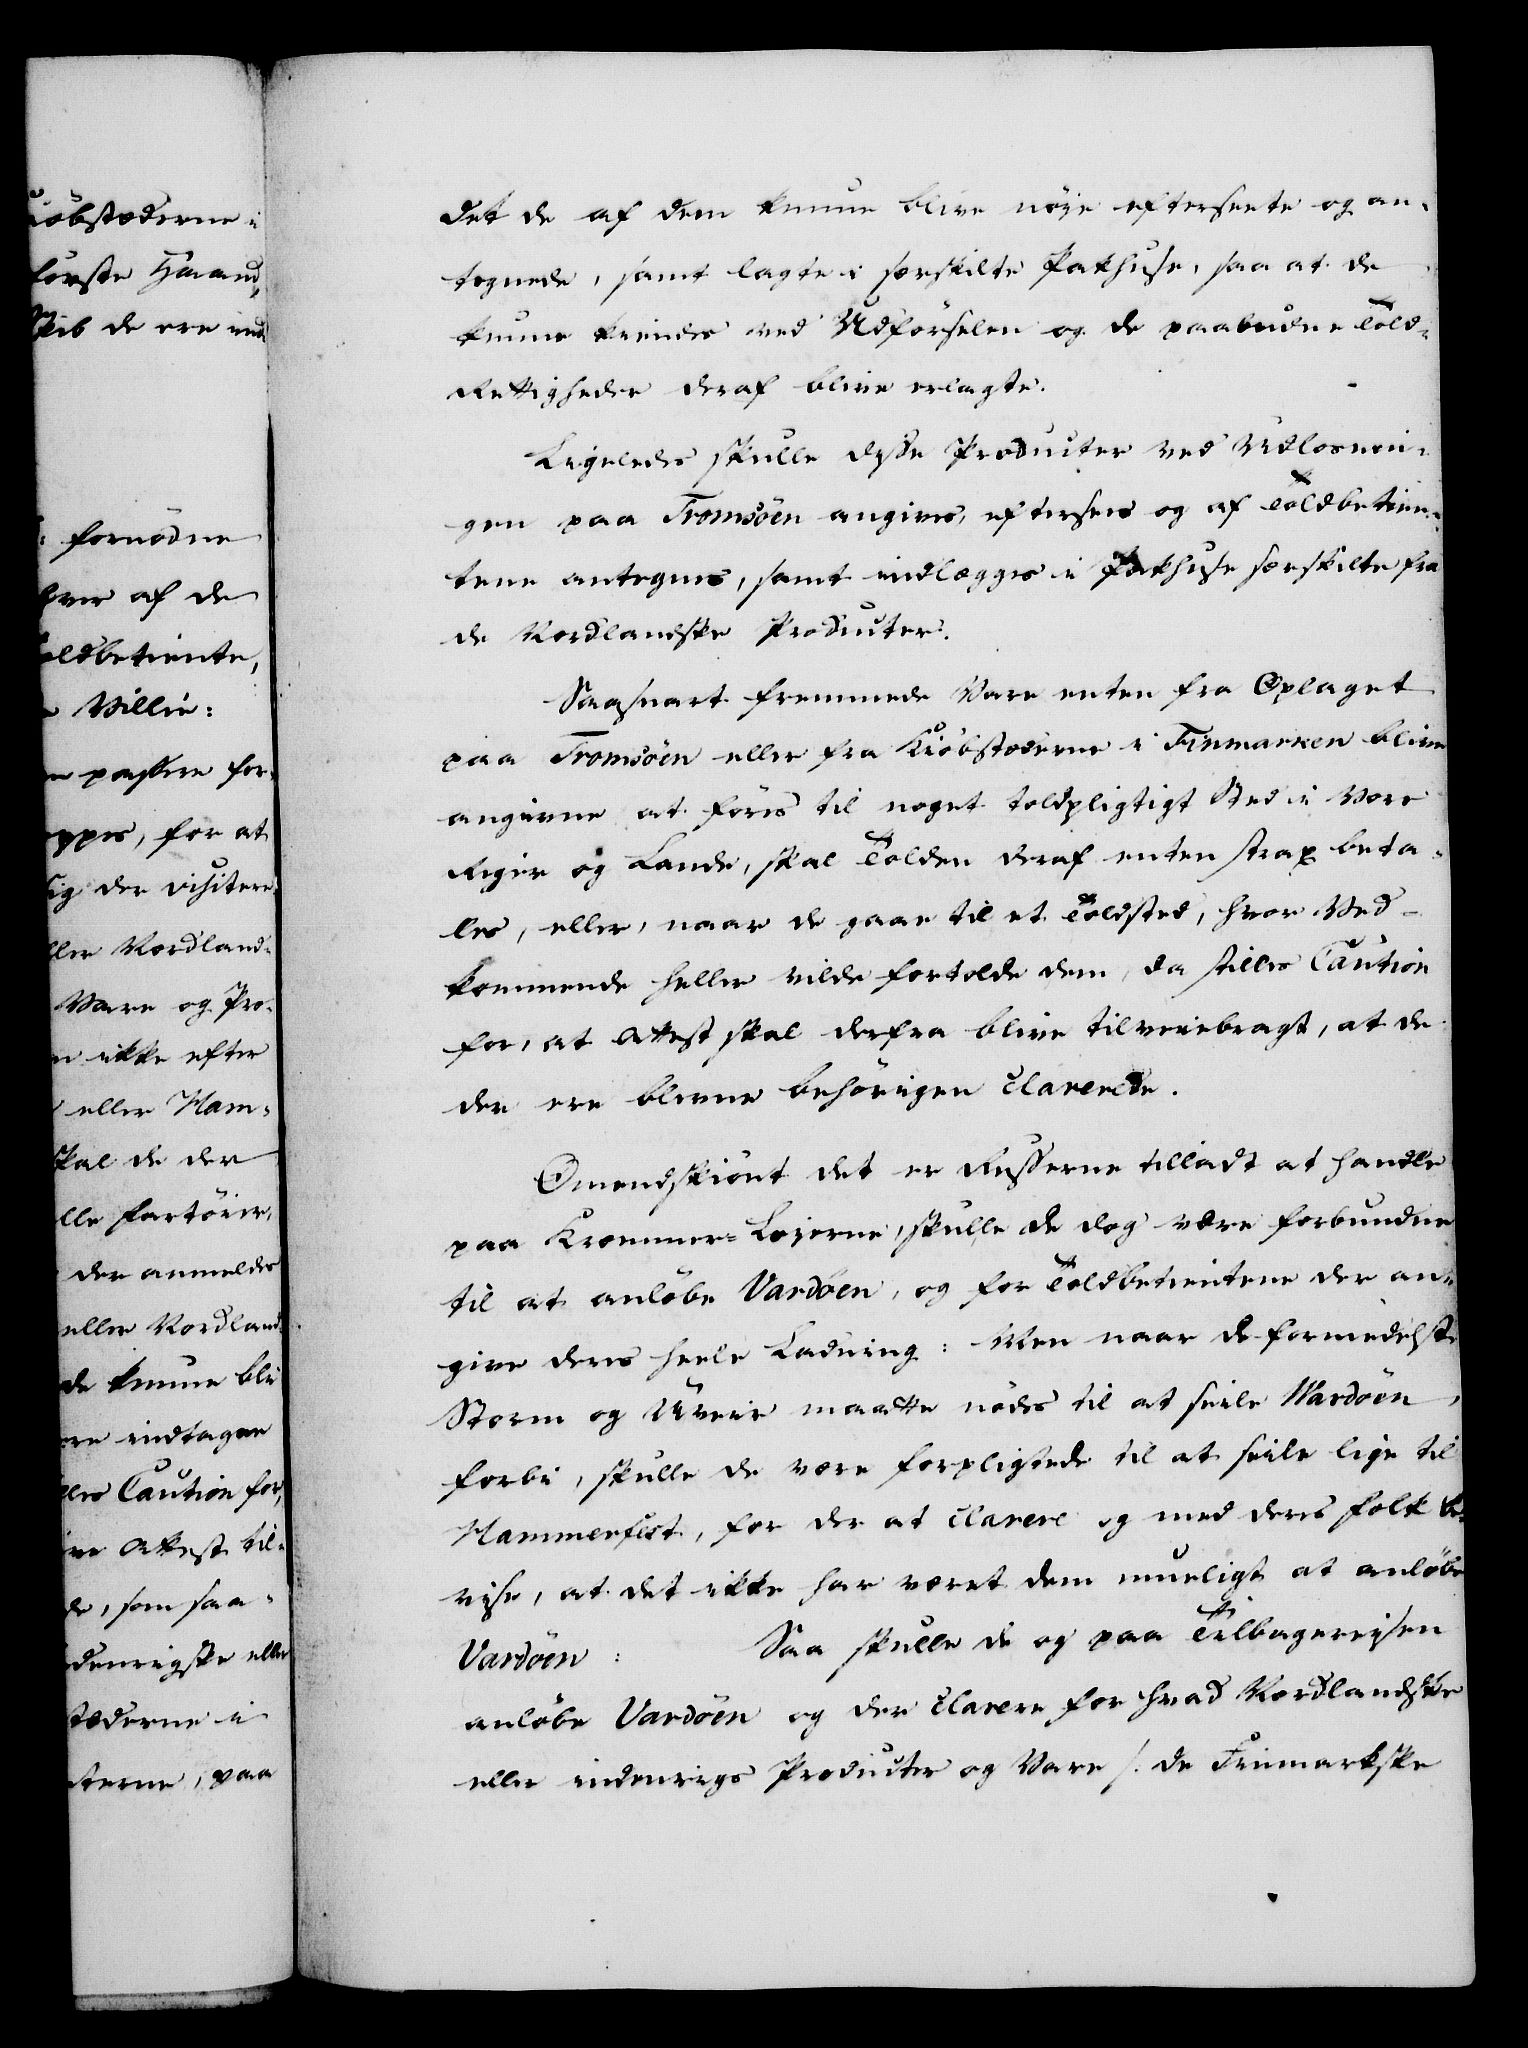 kiöbstæderne i
förste Haand,
Skib de ere ind
: fornödne
hver af de
oldbetiente,
Villie:
passere for-
for at
sig der visitere
ller Nordland-
Vare og Pro-
ikke efter
eller Ham-
skal de der
lle fartöier,
der anmeldes
eller Nordland-
de kunne bli
ere indtagne
lles Caution for,
ve Attest til-
de, som saa-
denrigske eller
stæderne i
sterne, paa
det de af dem kunne blive nöje efterseete og an-
tegnede, samt lagte i særskilte Pakhuse, saa at de
kunne kiendes ved Udförselen og de paabudne Told-
Rettigheder deraf blive erlagte.
Ligeledes skulle disse Producter ved Udlosnin-
gen paa Tromsöen angives, eftersees og af Toldbetien-
tene antegnes, samt indlægges i Pakhuse særskilte fra
de Nordlandske Producter.
Saasnart fremmede Vare enten fra Oplaget
paa Tromsöen eller fra Kiöbstæderne i Finmarken blive
angivne at föres til noget toldpligtigt Sted i Vore
Riger og Lande, skal Tolden deraf enten strax beta-
les, eller, naar de gaae til et Toldsted, hvor Ved-
kommende heller vilde fortolde dem, da stilles Caution
for, at Attest skal derfra blive tilveiebragt, at de
der ere blevne behörigen clarerede.
Omendskiönt det er Russerne tilladt at handle
paa Kræmmer-Leierne, skulle de dog være forbundne
til at anlöbe Vardöen, og for Toldbetientene der an-
give deres heele Ladning: Men naar de formedelst
Storm og Uveir maatte nödes til at seile Wardöen,
forbi, skulle de være forpligtede til at seile lige til
Hammerfest, for der at clarere og med deres Folk be-
vise, at det ikke har været dem mueligt at anlöbe
Vardöen: Saa skulle de og paa Tilbagereisen
anlöbe Vardöen og der clarere for hvad Nordlandske
eller indenrigs Producter og Vare /: de Finmarkske